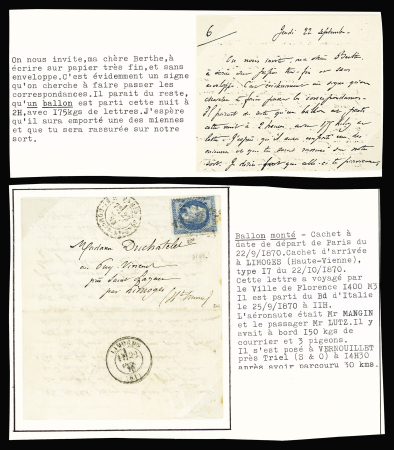 On nous invite,ma chère Berthe,à
écrire sur papier très fin,et sans
enveloppe.C'est évidemment un signe
qu'on cherche à faire passer les
correspondances.Il parait du reste,
qu'un ballon est parti cette nuit à
2H,avec 175kgs de lettres.J'espère
qu'il aura emporté une des miennes
et que tu sera rassurée sur notre
sort.
6
Jeudi 22 septembre.
On nous invite, ma chère Berthe
à écrire sur papier très fin et sans
enveloppe. C'est évidemment un signe qu'on
cherche à faire passer les correspondances.
Il parait du reste qu'un ballon est parti
cette nuit à 2 heures, avec 175 kilog de
lettres. J'espère qu'il aura emporté une des
miennes et que tu seras rassurée sur notre
sort.
Madame Duchatelet
au Puy Vincent
près Saint
par Limoges
(Hte Vienne)
LIMOGES
Ballon monté - Cachet à
date de départ de Paris du
22/9/1870.Cachet d'arrivée
à LIMOGES (Haute-Vienne),
type I7 du 22/10/1870.
Cette lettre a voyagé par
le Ville de Florence I400 M3
Il est parti du Bd d'Italie
le 25/9/1870 à IIH.
L'aéronaute était Mr MANGIN
et le passager Mr LUTZ.Il y
avait à bord I50 kgs de
courrier et 3 pigeons.
Il s'est posé à VERNOUILLET
près Triel (S & O) à I4H30
après avoir parcouru 30 kms.